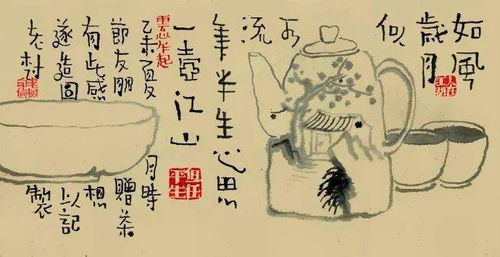 如風
歲月
人在江湖
似
水
流
年半生心思
一壺江山
但任平生
乙未夏月時
節友朋贈茶
有此感想
遂造圖以記
老村製